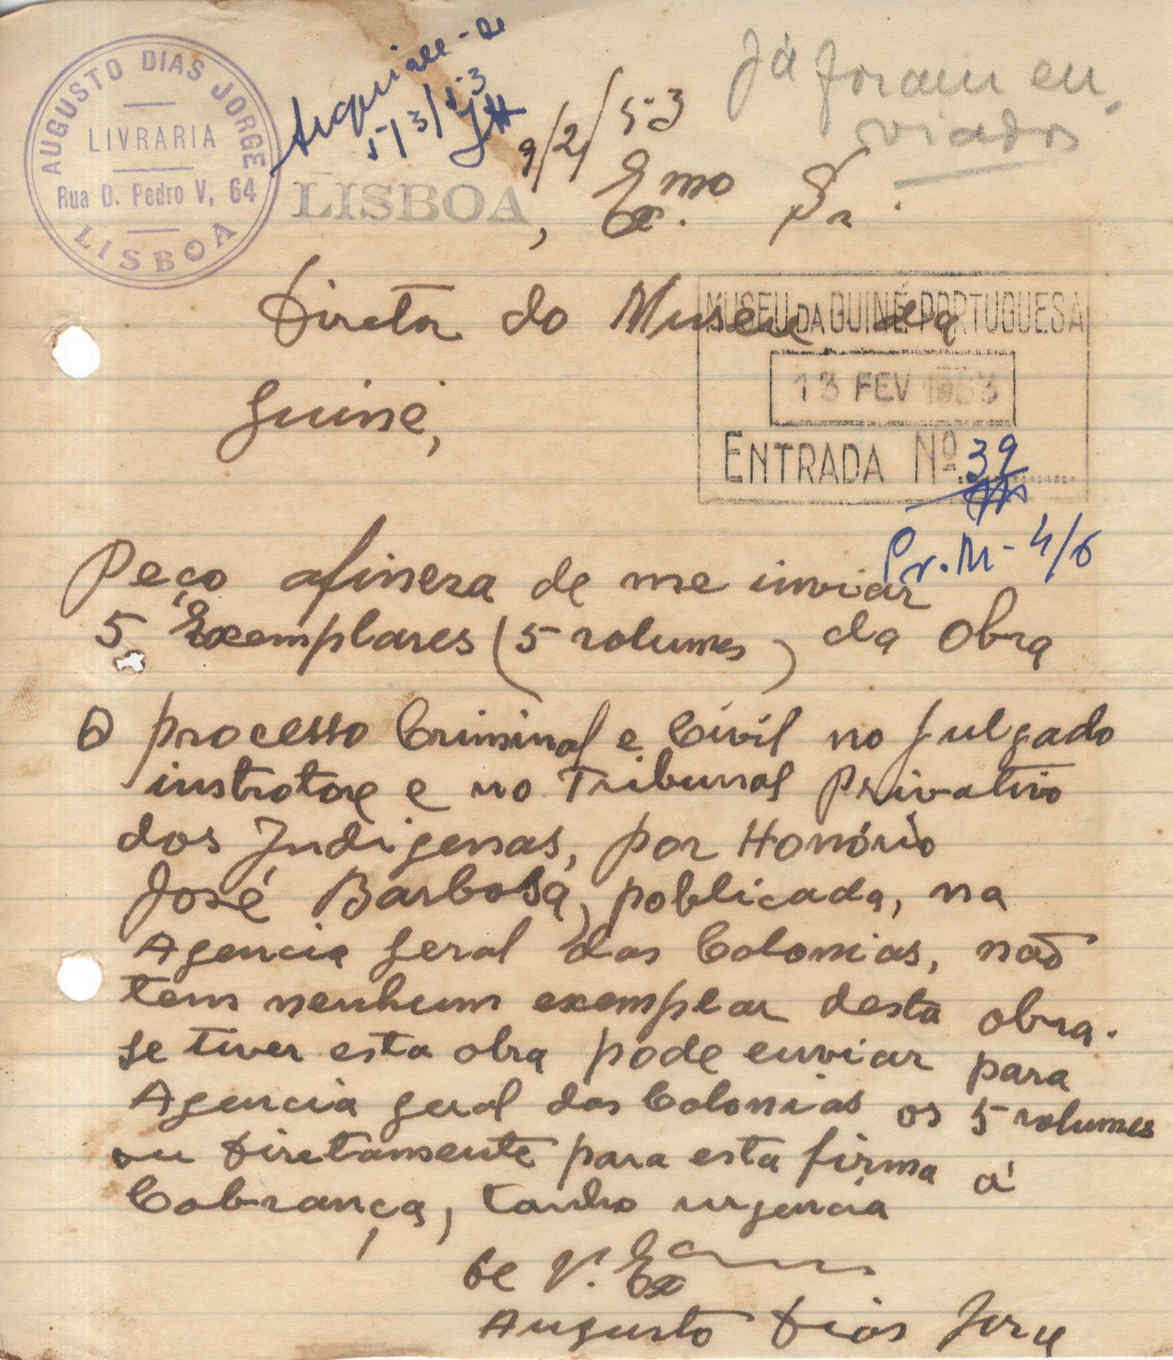 AUGUSTO DIAS JORGE
LIVRARIA
Rua D. Pedro V, 64
LISBOA
Arquive-se
5/3/53
Já foram en-
viados
LISBOA, 9/2/53
Exmo Sr.
Diretor do Museu da
Guiné,
MUSEU DA GUINÉ PORTUGUESA
13 FEV 1953
ENTRADA Nº 39
Pr. M-4/6
Peço afineza de me inviar
5 Exemplares (5 volumes) da Obra
O processo Criminal e Civil no julgado
instrotore e no Tribunal Privativo
dos Indigenas, por Honório
José Barbosa, poblicada, na
Agencia geral das Colonias, não
tem nenhum exemplar desta obra.
se tiver esta obra pode enviar para
Agencia geral das Colonias os 5 volumes
ou Diretamente para esta firma á
Cobrança, tanho urgencia
de V. Ex
Augusto Dias Jorge